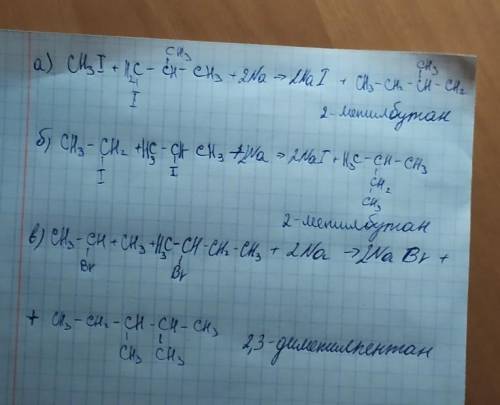 CH₃
а) CH₃I + H₂C – CH – CH₃ + 2Na → 2NaI + CH₃ – CH₂ – CH – CH₂
I
CH₃
2-метилбутан
б) CH₃ – CH₂ + H₃C – CH – CH₃ + 2Na → 2NaI + H₃C – CH – CH₃
I
I
CH₂
CH₃
2-метилбутан
в) CH₃ – CH + CH₃ + H₃C – CH – CH₂ – CH₃ + 2Na → 2NaBr +
Br
Br
+ CH₃ – CH₂ – CH – CH – CH₃
CH₃
CH₃
2,3-диметилпентан